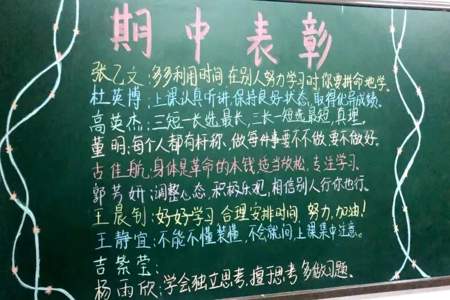 期中表彰
张乙文:多多利用时间,在别人努力学习时你要拼命地学。
杜英博:上课认真听讲,保持良好状态,取得优异成绩。
高英杰:三短一长选最长,三长一短选最短,真理。
董明:每个人都有杆称、做每件事要不不做,要不做好。
古佳航:身体是革命的本钱,适当放松,专注学习。
郭芳妍:调整心态,积极乐观,相信别人行你也行。
王晨钊:好好学习,合理安排时间,努力,加油!
王静宜:不能不懂装懂,不会就问,上课集中注意。
吉紫莹:
杨雨欣:学会独立思考,擅于思考,多做习题。